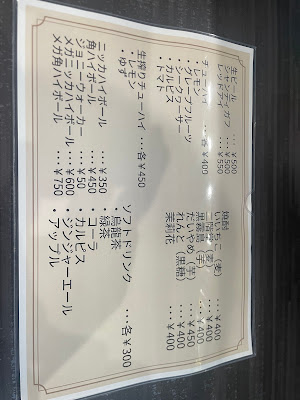 生ビール ・・・¥500
シャンディガフ ・・・¥550
レッドアイ ・・・¥550
チューハイ ・・・各¥400
・レモン
・グレープフルーツ
・シークヮーサー
・カルピス
・トマト
生搾りチューハイ ・・・各¥450
・レモン
・ゆず
ニッカハイボール ・・・¥350
角ハイボール ・・・¥450
ジョニーウォーカー ・・・¥50
メガニッカハイボール ・・・¥600
メガ角ハイボール ・・・¥750
焼酎
いいちこ(麦) ・・・¥400
二階堂(麦) ・・・¥400
黒霧島(芋) ・・・¥400
だいやめ(芋) ・・・¥450
れんと(黒糖) ・・・¥400
茉莉花 ・・・¥400
ソフトドリンク ・・・各¥300
・烏龍茶
・緑茶
・コーラ
・カルピス
・ジンジャーエール
・アップル